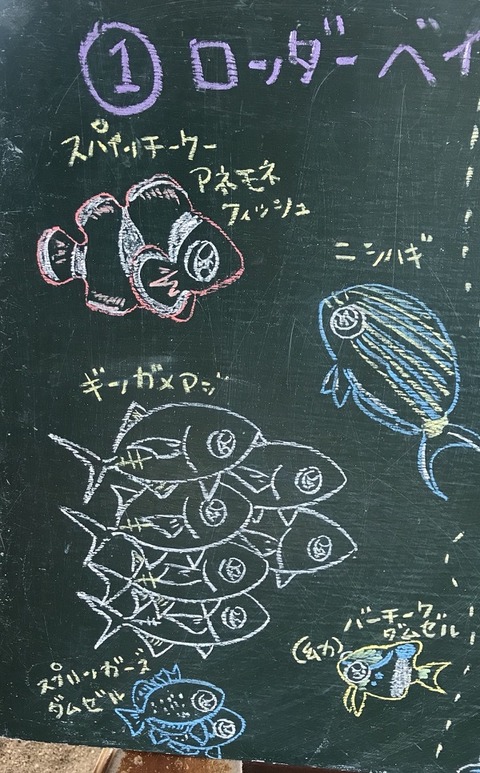 ① ロンダーベイ
スパインチーク
アネモネ
フィッシュ
ニシハギ
ギンガメアジ
バーチーク
ダムゼル
(幼)
スプリンガーズ
ダムゼル